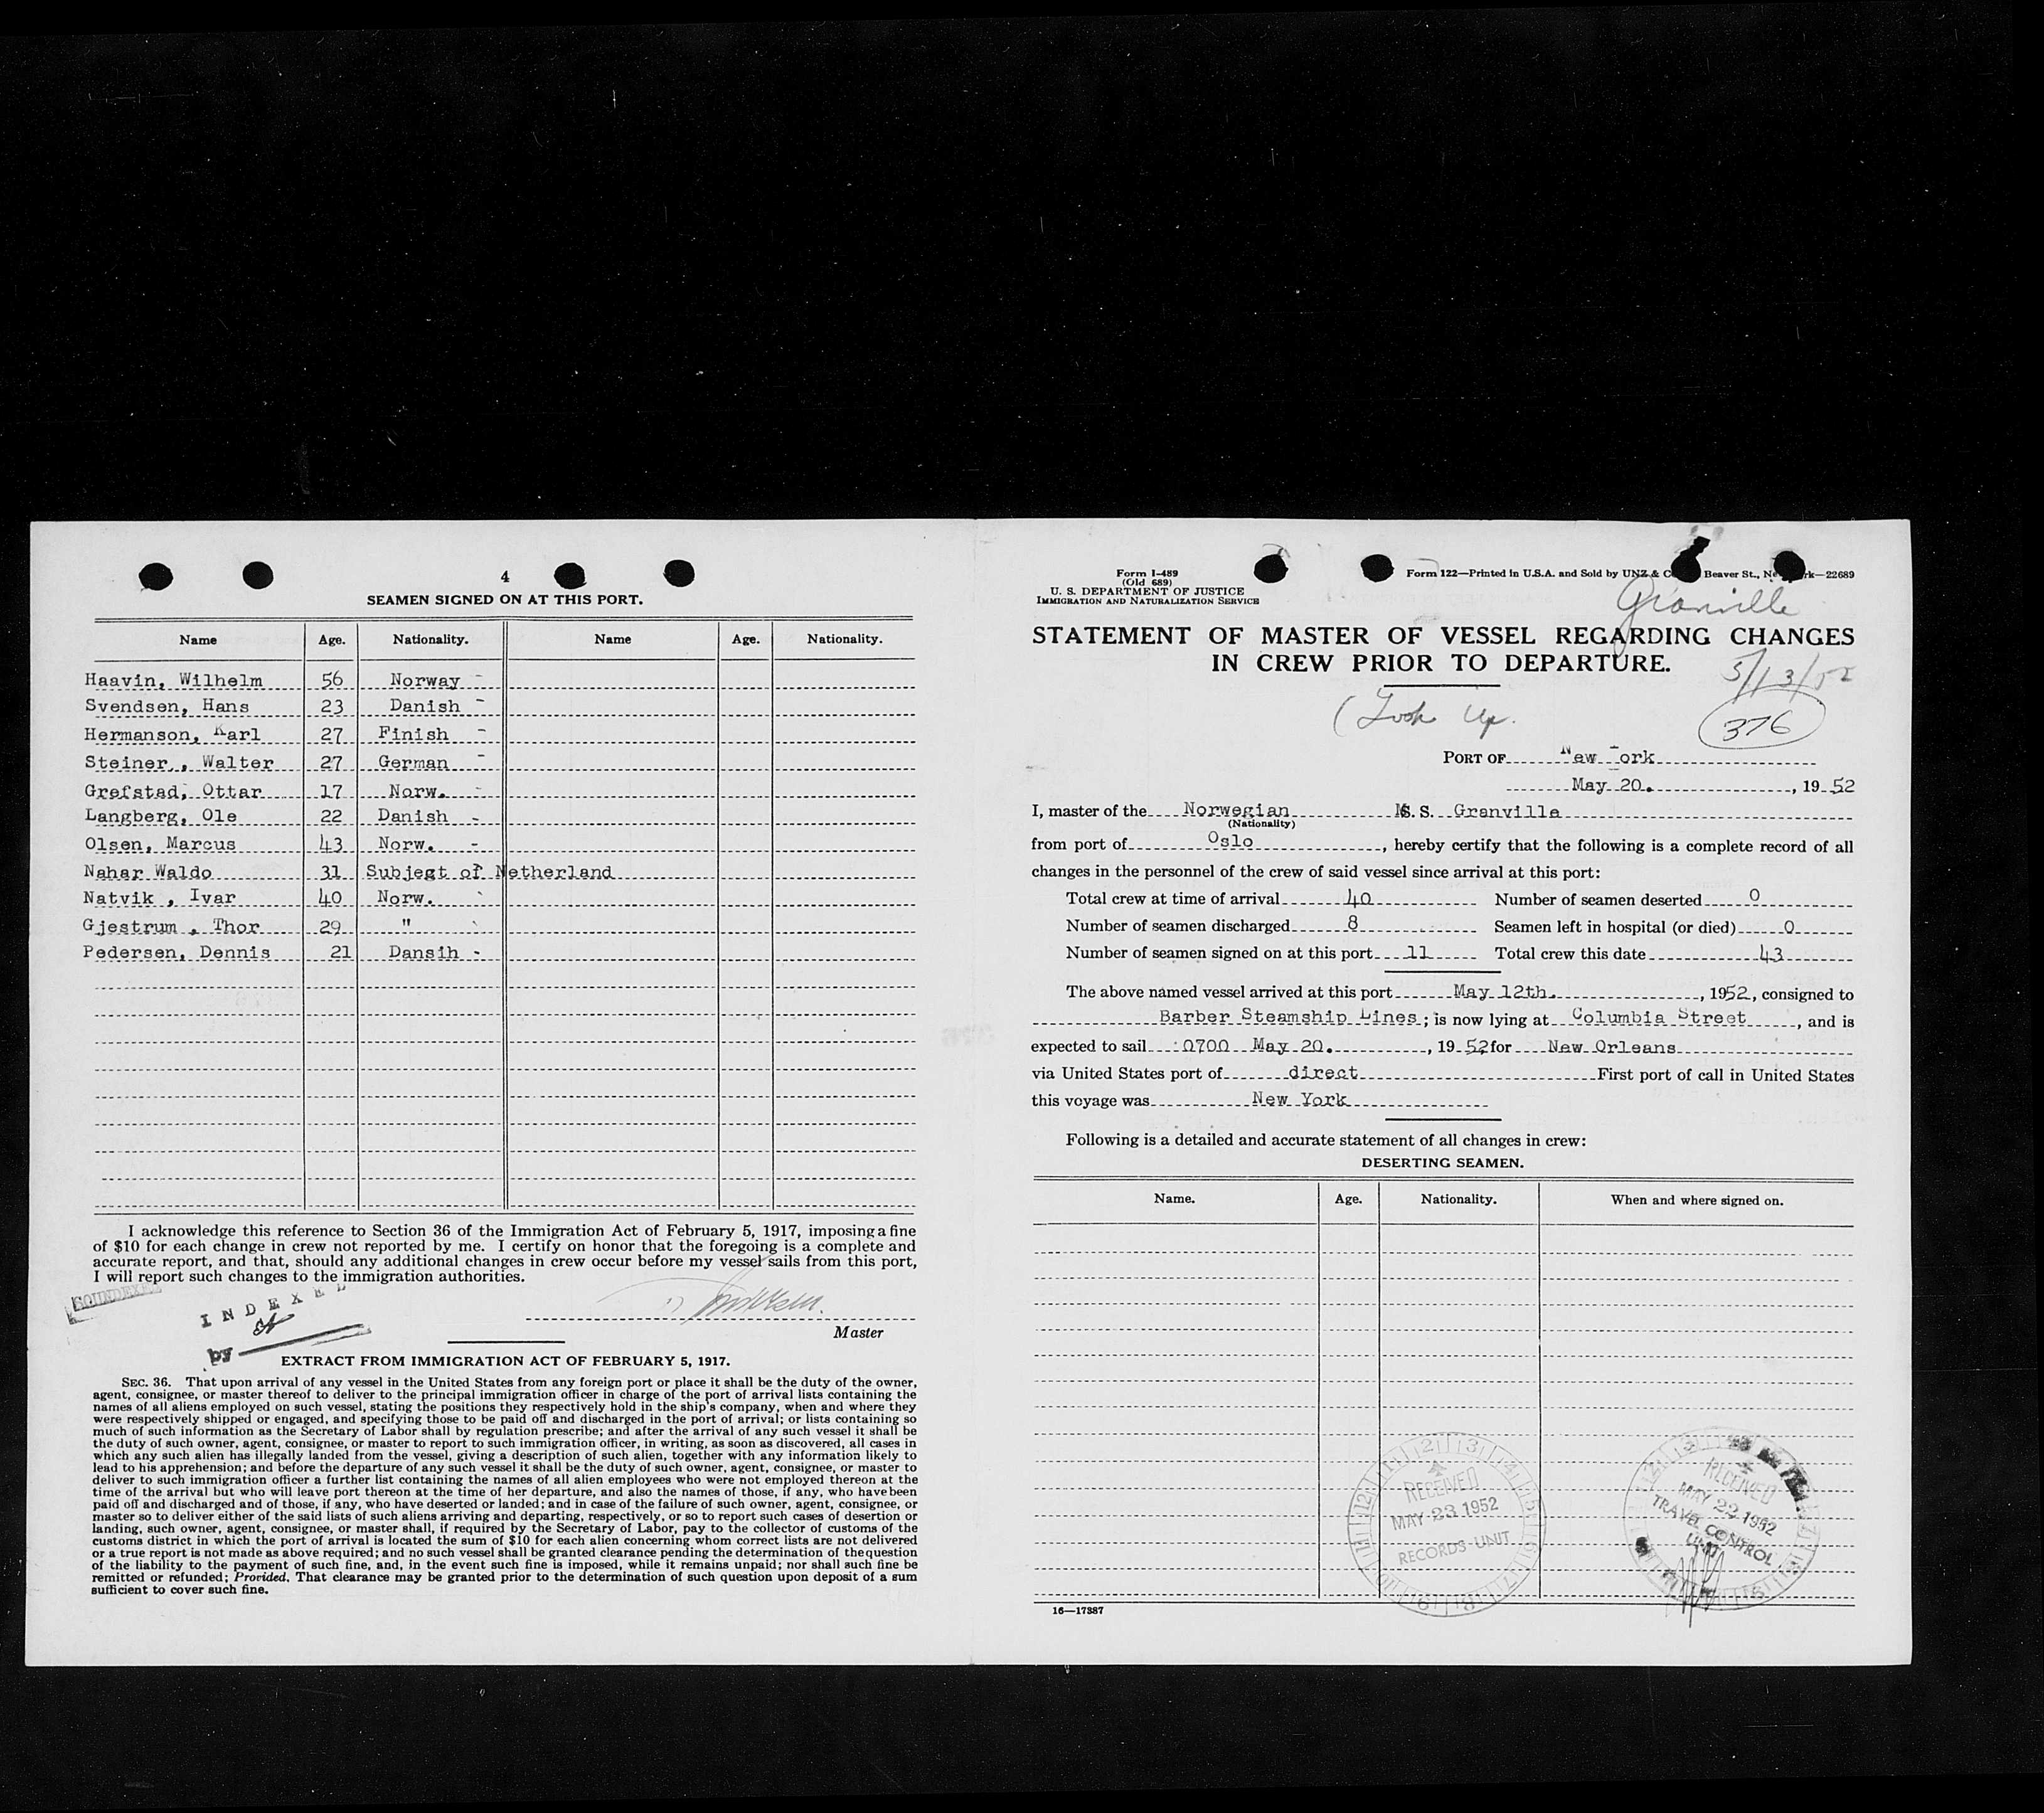 4
SEAMEN SIGNED ON AT THIS PORT.
Name Age. Nationality. Name Age. Nationality.
Haavin, Wilhelm 56 Norway -
Svendsen, Hans 23 Danish -
Hermanson, Karl 27 Finish -
Steiner , Walter 27 German -
Grefstad, Ottar 17 Norw. -
Langberg, Ole 22 Danish -
Olsen, Marcus 43 Norw. -
Nahar Waldo 31 Subjegt of Netherland
Natvik , Ivar 40 Norw.
Gjestrum , Thor 29 "
Pedersen, Dennis 21 Dansih -
I acknowledge this reference to Section 36 of the Immigration Act of February 5, 1917, imposing a fine
of $10 for each change in crew not reported by me. I certify on honor that the foregoing is a complete and
accurate report, and that, should any additional changes in crew occur before my vessel sails from this port,
I will report such changes to the immigration authorities.
INDEXED
by
Master
EXTRACT FROM IMMIGRATION ACT OF FEBRUARY 5, 1917.
SEC. 36. That upon arrival of any vessel in the United States from any foreign port or place it shall be the duty of the owner,
agent, consignee, or master thereof to deliver to the principal immigration officer in charge of the port of arrival lists containing the
names of all aliens employed on such vessel, stating the positions they respectively hold in the ship's company, when and where they
were respectively shipped or engaged, and specifying those to be paid off and discharged in the port of arrival; or lists containing so
much of such information as the Secretary of Labor shall by regulation prescribe; and after the arrival of any such vessel it shall be
the duty of such owner, agent, consignee, or master to report to such immigration officer, in writing, as soon as discovered, all cases in
which any such alien has illegally landed from the vessel, giving a description of such alien, together with any information likely to
lead to his apprehension; and before the departure of any such vessel it shall be the duty of such owner, agent, consignee, or master to
deliver to such immigration officer a further list containing the names of all alien employees who were not employed thereon at the
time of the arrival but who will leave port thereon at the time of her departure, and also the names of those, if any, who have been
paid off and discharged and of those, if any, who have deserted or landed; and in case of the failure of such owner, agent, consignee, or
master so to deliver either of the said lists of such aliens arriving and departing, respectively, or so to report such cases of desertion or
landing, such owner, agent, consignee, or master shall, if required by the Secretary of Labor, pay to the collector of customs of the
customs district in which the port of arrival is located the sum of $10 for each alien concerning whom correct lists are not delivered
or a true report is not made as above required; and no such vessel shall be granted clearance pending the determination of the question
of the liability to the payment of such fine, and, in the event such fine is imposed, while it remains unpaid; nor shall such fine be
remitted or refunded; Provided, That clearance may be granted prior to the determination of such question upon deposit of a sum
sufficient to cover such fine.
Form I-489
(Old 689)
U. S. DEPARTMENT OF JUSTICE
IMMIGRATION AND NATURALIZATION SERVICE
Form 122—Printed in U.S.A. and Sold by UNZ & Beaver St., —22689
Granville
STATEMENT OF MASTER OF VESSEL REGARDING CHANGES
IN CREW PRIOR TO DEPARTURE.
5/13/52
(Look Up.
376
PORT OF New York
May 20. , 19 52
I, master of the Norwegian M.S. S. Granville
(Nationality)
from port of Oslo , hereby certify that the following is a complete record of all
changes in the personnel of the crew of said vessel since arrival at this port:
Total crew at time of arrival 40 Number of seamen deserted 0
Number of seamen discharged 8 Seamen left in hospital (or died) 0
Number of seamen signed on at this port 11 Total crew this date 43
The above named vessel arrived at this port May 12th. , 1952 , consigned to
Barber Steamship Lines ; is now lying at Columbia Street , and is
expected to sail 0700 May 20. , 19 52 for New Orleans
via United States port of direct First port of call in United States
this voyage was New York
Following is a detailed and accurate statement of all changes in crew:
DESERTING SEAMEN.
Name. Age. Nationality. When and where signed on.
RECEIVED
MAY 23 1952
RECORDS UNIT
RECEIVED
MAY 22 1952
TRAVEL CONTROL
UNIT
16—17387